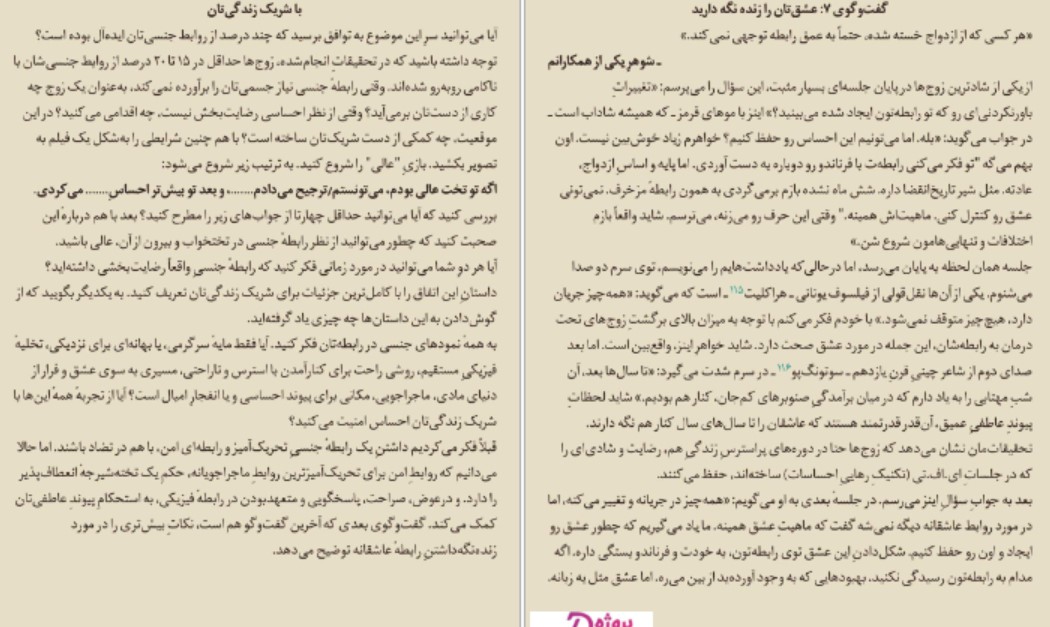 گفت‌وگوی ۷: عشق‌تان را زنده نگه دارید
«هر کسی که از ازدواج خسته شده، حتماً به عمق رابطه توجهی نمی‌کند.»
ـ شوهرِ یکی از همکارانم
از یکی از شادترین زوج‌ها در پایان جلسه‌ای بسیار مثبت، این سؤال را می‌پرسم: «تغییراتِ
باورنکردنی‌ای رو که تو رابطه‌تون ایجاد شده می‌بینید؟» اینز با موهای قرمز ـ که همیشه شاداب است ـ
در جواب می‌گوید: «بله. اما می‌تونیم این احساس رو حفظ کنیم؟ خواهرم زیاد خوش‌بین نیست. اون
بهم می‌گه "تو فکر می‌کنی رابطه‌ت با فرناندو رو دوباره به دست آوردی. اما پایه و اساسِ ازدواج،
عادته. مثل شیر تاریخ‌انقضا داره. شش ماه نشده بازم برمی‌گردی به همون رابطهٔ مزخرف. نمی‌تونی
عشق رو کنترل کنی. ماهیت‌اش همینه." وقتی این حرف رو می‌زنه، می‌ترسم. شاید واقعاً بازم
اختلافات و تنهایی‌هامون شروع شن.»
جلسه همان لحظه به پایان می‌رسد، اما درحالی‌که یادداشت‌هایم را می‌نویسم، توی سرم دو صدا
می‌شنوم. یکی از آن‌ها نقل‌قولی از فیلسوف یونانی ـ هراکلیت۱۱۵ ـ است که می‌گوید: «همه‌چیز جریان
دارد، هیچ‌چیز متوقف نمی‌شود.» با خودم فکر می‌کنم با توجه به میزان بالای برگشتِ زوج‌های تحت
درمان به رابطه‌شان، این جمله در مورد عشق صحت دارد. شاید خواهرِ اینز، واقع‌بین است. اما بعد
صدای دوم از شاعر چینیِ قرنِ یازدهم ـ سوتونگ‌پو۱۱۶ ـ در سرم شدت می‌گیرد: «تا سال‌ها بعد، آن
شبِ مهتابی را به یاد دارم که در میان برآمدگیِ صنوبرهای کم‌جان، کنار هم بودیم.» شاید لحظاتِ
پیوندِ عاطفیِ عمیق، آن‌قدر قدرتمند هستند که عاشقان را تا سال‌های سال کنار هم نگه دارند.
تحقیقات‌مان نشان می‌دهد که زوج‌ها حتا در دوره‌های پراسترسِ زندگیِ هم، رضایت و شادی‌ای را
که در جلسات ای‌.اف‌.تی (تکنیکِ رهایی احساسات) ساخته‌اند، حفظ می‌کنند.
بعد به جوابِ سؤالِ اینز می‌رسم. در جلسهٔ بعدی به او می‌گویم: «همه‌چیز در جریانه و تغییر می‌کنه، اما
در مورد روابط عاشقانه دیگه نمی‌شه گفت که ماهیتِ عشق همینه. ما یاد می‌گیریم که چطور عشق رو
ایجاد و اون رو حفظ کنیم. شکل‌دادنِ این عشق توی رابطه‌تون، به خودت و فرناندو بستگی داره. اگه
مدام به رابطه‌تون رسیدگی نکنید، بهبودهایی که به وجود آورده‌ید از بین می‌ره. اما عشق مثل یه زبانه.
پروژه
با شریک زندگی‌تان
آیا می‌توانید سرِ این موضوع به توافق برسید که چند درصد از روابط جنسی‌تان ایده‌آل بوده است؟
توجه داشته باشید که در تحقیقاتِ انجام‌شده، زوج‌ها حداقل در ۱۵ تا ۲۰ درصد از روابط جنسی‌شان با
ناکامی روبه‌رو شده‌اند. وقتی رابطهٔ جنسی نیاز جسمی‌تان را برآورده نمی‌کند، به‌عنوان یک زوج چه
کاری از دست‌تان برمی‌آید؟ وقتی از نظر احساسی رضایت‌بخش نیست، چه اقدامی می‌کنید؟ در این
موقعیت، چه کمکی از دست شریک‌تان ساخته است؟ با هم چنین شرایطی را به‌شکل یک فیلم به
تصویر بکشید. بازیِ "عالی" را شروع کنید. به ترتیب زیر شروع می‌شود:
اگه تو تخت عالی بودم، می‌تونستم/ترجیح می‌دادم.......، و بعد تو بیش‌تر احساسِ....... می‌کردی.
بررسی کنید که آیا می‌توانید حداقل چهارتا از جواب‌های زیر را مطرح کنید؟ بعد با هم دربارهٔ این
صحبت کنید که چطور می‌توانید از نظر رابطهٔ جنسی در تختخواب و بیرون از آن، عالی باشید.
آیا هر دو شما می‌توانید در مورد زمانی فکر کنید که رابطهٔ جنسی واقعاً رضایت‌بخشی داشته‌اید؟
داستانِ این اتفاق را با کامل‌ترین جزئیات برای شریک زندگی‌تان تعریف کنید. به یکدیگر بگویید که از
گوش‌دادن به این داستان‌ها چه چیزی یاد گرفته‌اید.
به همهٔ نمودهای جنسی در رابطه‌تان فکر کنید. آیا فقط مایهٔ سرگرمی، یا بهانه‌ای برای نزدیکی، تخلیهٔ
فیزیکیِ مستقیم، روشی راحت برای کنارآمدن با استرس و ناراحتی، مسیری به سوی عشق و فرار از
دنیای مادی، ماجراجویی، مکانی برای پیوند احساسی و یا انفجارِ امیال است؟ آیا از تجربهٔ همهٔ این‌ها با
شریک زندگی‌تان احساس امنیت می‌کنید؟
قبلاً فکر می‌کردیم داشتنِ یک رابطهٔ جنسیِ تحریک‌آمیز و رابطه‌ای امن، با هم در تضاد باشند. اما حالا
می‌دانیم که روابطِ امن برای تحریک‌آمیزترین روابطِ ماجراجویانه، حکمِ یک تخته‌شیرجهٔ انعطاف‌پذیر
را دارد. و درعوض، صراحت، پاسخگویی و متعهدبودن در رابطهٔ فیزیکی، به استحکامِ پیوندِ عاطفی‌تان
کمک می‌کند. گفت‌وگوی بعدی که آخرین گفت‌وگو هم است، نکاتِ بیش‌تری را در مورد
زنده‌نگه‌داشتنِ رابطهٔ عاشقانه توضیح می‌دهد.